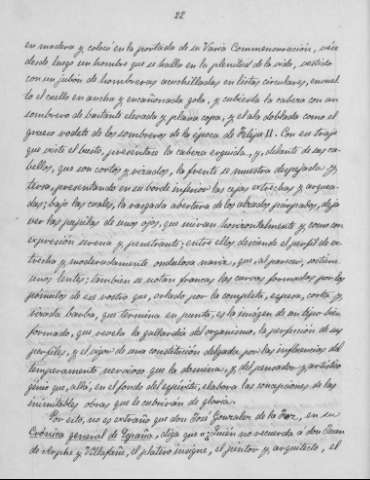 22
en madera y colocó en la portada de su Varia Commensuración, vése
desde luego un hombre que se halla en la plenitud de la vida, vestido
con un jubón de hombreras acuchilladas en listas circulares, envuel-
to el cuello en ancha y encañonada gola, y cubierta la cabeza con un
sombrero de bastante elevada y plana copa, y el ala doblada como el
grueso rodete de los sombreros de la época de Felipe II. Con ese traje
que viste el busto, preséntase la cabeza erguida, y, delante de sus ca-
bellos, que son cortos y rizados, la frente se muestra despejada y
tersa, presentando en su borde inferior las cejas estrechas y arquea-
das; bajo las cuales, la rasgada abertura de los abiertos párpados, deja
ver las pupilas de unos ojos, que miran horizontalmente y como con
expresión serena y penetrante; entre ellos desciende el perfil de es-
trecha y moderadamente ondulosa nariz, que, al parecer, sostiene
unos lentes; también se notan francas las curvas formadas por los
pómulos de ese rostro que, orlado por la completa, espesa, corta y
rizada barba, que termina en punta, es la imagen de un tipo bien
formado, que revela la gallardía del organismo, la perfección de sus
perfiles, y el vigor de una constitución delgada por las influencias del
temperamento nervioso que la domina, y del pensador y artístico
genio que, allá, en el fondo del espíritu, elabora las concepciones de las
inimitables obras que le cubrirán de gloria.
Por esto, no es extraño que don José Gonzalez de la Foz, en su
Crónica general de España, diga que "¿Quién no recuerda á don Juan
de Arphe y Villafañe, el platero insigne, el pintor y arquitecto, el